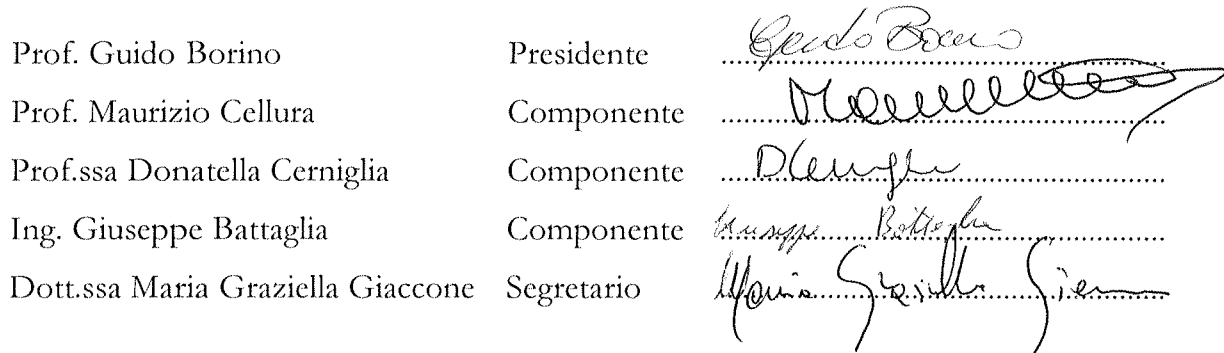 Prof. Guido Borino Presidente Guido Borino
Prof. Maurizio Cellura Componente
Prof.ssa Donatella Cerniglia Componente DCerniglia
Ing. Giuseppe Battaglia Componente Giuseppe Battaglia
Dott.ssa Maria Graziella Giaccone Segretario Maria Graziella